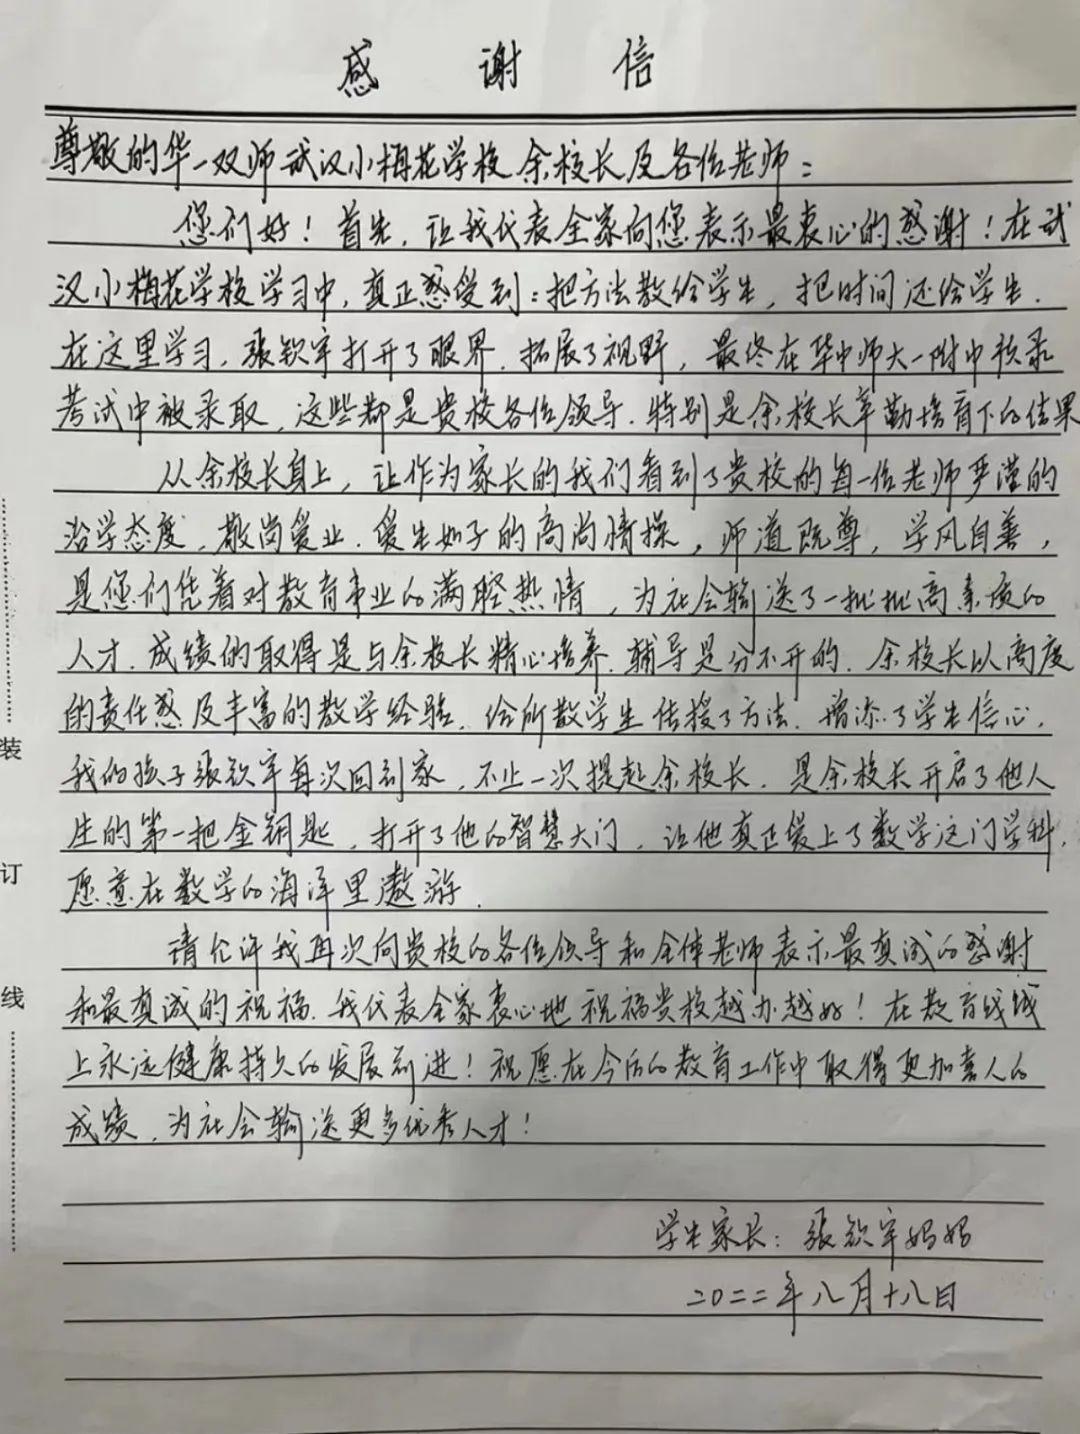 感谢信
尊敬的华一双师武汉小梅花学校余校长及各位老师：
您们好！首先，让我代表全家向您表示最衷心的感谢！在武
汉小梅花学校学习中，真正感受到：把方法教给学生，把时间还给学生．
在这里学习．张钦宇打开了眼界．拓展了视野，最终在华中师大一附中预录
考试中被录取，这些都是贵校各位领导．特别是余校长辛勤培育下的结果
从余校长身上，让作为家长的我们看到了贵校的每一位老师严谨的
治学态度，敬岗爱业．爱生如子的高尚情操，师道既尊，学风自善，
是您们凭着对教育事业的满腔热情，为社会输送了一批批高素质的
人才．成绩的取得是与余校长精心培养．辅导是分不开的．余校长以高度
的责任感及丰富的教学经验．给所教学生传授了方法．增添了学生信心．
我的孩子张钦宇每次回到家．不止一次提起余校长．是余校长开启了他人
生的第一把金钥匙，打开了他的智慧大门，让他真正爱上了数学这门学科，
愿意在数学的海洋里遨游．
请允许我再次向贵校的各位领导和全体老师表示最真诚的感谢
和最真诚的祝福．我代表全家衷心地祝福贵校越办越好！在教育线域
上永远健康持久的发展前进！祝愿在今后的教育工作中取得更加喜人的
成绩，为社会输送更多优秀人才！
学生家长：张钦宇妈妈
二〇二二年八月十八日
装
订
线